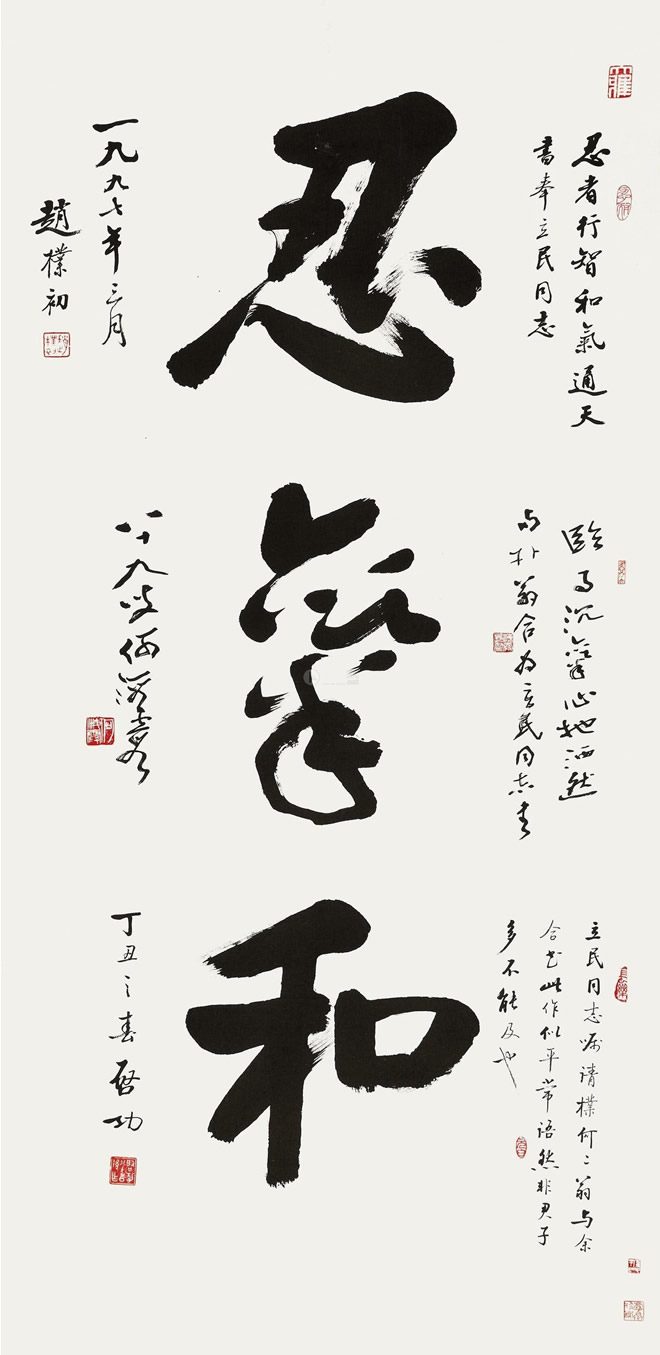 忍者行智和氣通天
書奉立民同志
忍
一九九七年三月
趙樸初
臨事沉氣心地洒然
与朴翁合为立民同志书
氣
八十九叟何海霞
立民同志嘱請樸何二翁与余
合书此作似平常語然非君子
多不能及也
和
丁丑之春啓功